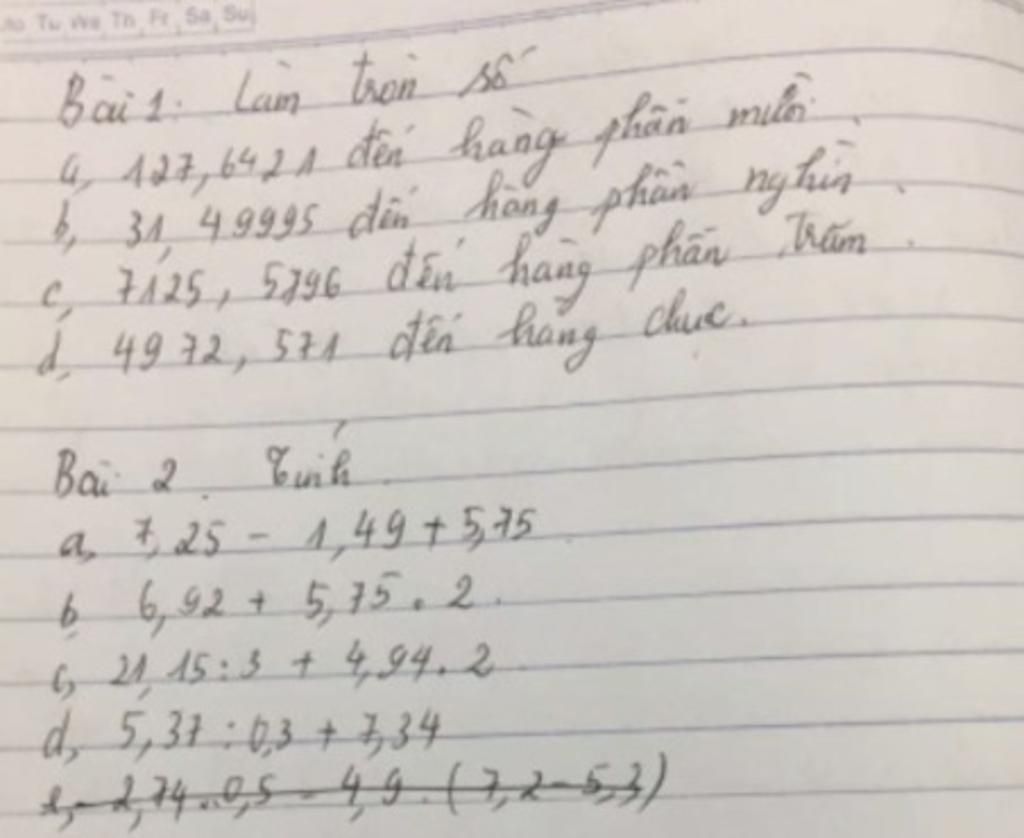 Mo Tu We Th Fr Sa Su
Bài 1: Làm tròn số
a, 127,6421 đến hàng phần mười.
b, 31,49995 đến hàng phần nghìn.
c, 7125,5796 đến hàng phần trăm.
d, 4972,571 đến hàng chục.
Bài 2. Tính
a, 7,25 - 1,49 + 5,75
b, 6,92 + 5,75 . 2.
c, 21,15 : 3 + 4,94 . 2
d, 5,37 : 0,3 + 7,34
e, - 2,74 . 0,5 - 4,9 . (7,2 - 5,3)